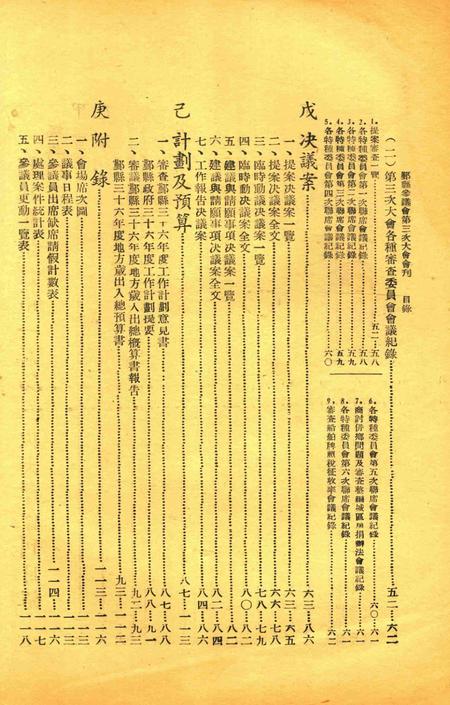 鄞縣參議會第三次大會會刊　目錄
（二）第三次大會各種審查委員會會議紀錄……五二—六二
1、提案審查一覽……五二—五八
2、各特種委員會第一次聯席會議紀錄……五八
3、各特種委員會第二次聯席會議紀錄……五九
4、各特種委員會第三次聯席會議紀錄……五九
5、各特種委員會第四次聯席會議紀錄……六〇
6、各特種委員會第五次聯席會議紀錄……六〇—六一
7、商討併鄉問題及審查整編城區房捐辦法會議紀錄……六一
8、各特種委員會第六次聯席會議紀錄……六一
9、審查船舶牌照稅征收率會議紀錄……六二
戊　決議案……六三—八六
一、提案決議案一覽……六三—六五
二、提案決議案全文……六六—七八
三、臨時動議決議案一覽……七八—七九
四、臨時動議決議案全文……八〇—八二
五、建議與請願事項決議案一覽……八二
六、建議與請願事項決議案全文……八二—八四
七、工作報告決議案……八四—八六
己　計劃及預算……八七—一一三
一、審查鄞縣三十六年度工作計劃意見書……八七—八八
鄞縣政府三十六年度工作計劃提要……八八—九一
二、審議鄞縣三十六年度地方歲入出總概算書報告……九二—九三
鄞縣三十六年度地方歲出入總預算書……九三—一一二
庚　附錄……一一三—一一八
一、會場席次圖……一一三
二、議事日程表……一一三
三、參議員出席缺席請假計數表……一一四—一一六
四、處理案件統計表……一一七
五、參議員更動一覽表……一一八